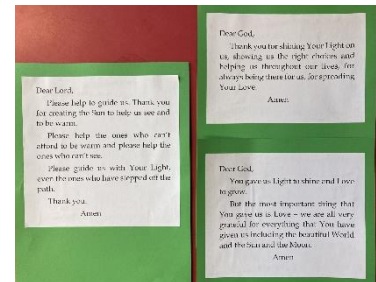 Dear Lord,
Please help to guide us. Thank you
for creating the Sun to help us see and
to be warm.
Please help the ones who can't
afford to be warm and please help the
ones who can't see.
Please guide us with Your Light,
even the ones who have stepped off the
path.
Thank you.
Amen
Dear God,
Thank you for shining Your Light on
us, showing us the right choices and
helping us throughout our lives, for
always being there for us, for spreading
Your Love.
Amen
Dear God,
You gave us Light to shine and Love
to grow.
But the most important thing that
You gave us is Love – we are all very
grateful for everything that You have
given us including the beautiful World
and the Sun and the Moon.
Amen